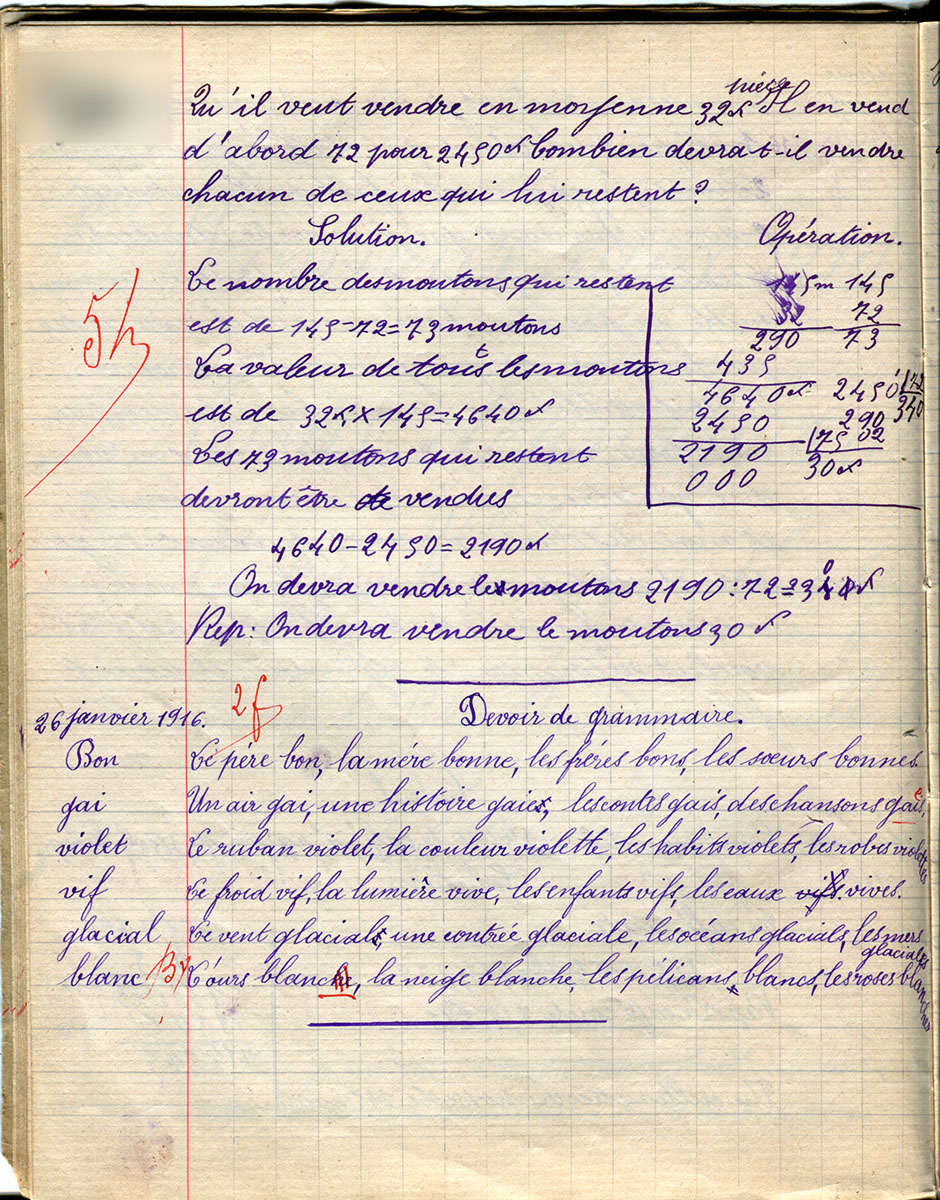 pièce
Qu'il veut vendre en moyenne 32f Il en vend
d'abord 72 pour 2450f Combien devra-t-il vendre
chacun de ceux qui lui restent ?
Solution. Opération.
Le nombre des moutons qui restent
est de 145-72=73 moutons
La valeur de tous les moutons
est de 32f×145=4640f
Les 73 moutons qui restent
devront être de vendus
4640-2450=2190f
On devra vendre les moutons 2190:72=30f
Rep: On devra vendre le moutons 30f
145
72
290 73
435
4640f 2450
2450 290
2190
000 30f
26 janvier 1916. Devoir de grammaire.
Bon Le pére bon, la mére bonne, les fréres bons, les sœurs bonnes.
gai Un air gai, une histoire gaie, les contes gais, des chansons gaies,
violet Le ruban violet, la couleur violette, les habits violets, les robes violettes
vif Le froid vif, la lumière vive, les enfants vifs, les eaux vifs. vives.
glacial Le vent glacial, une contrée glaciale, les océans glacials, les mers
glaciales
blanc L'ours blanc, la neige blanche, les pélicans, blancs, les roses blanches